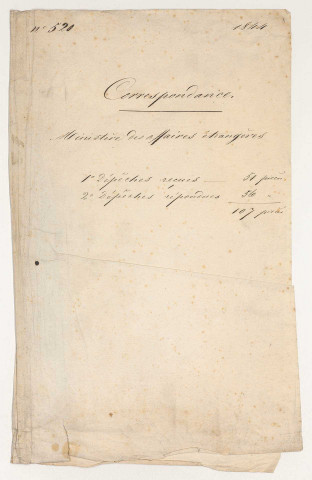 nº 520 1844
Correspondance.
Ministère des affaires étrangères
1º Dépêches recues 51 pièces
2º Dépêches répondues 56 "
107 pièces